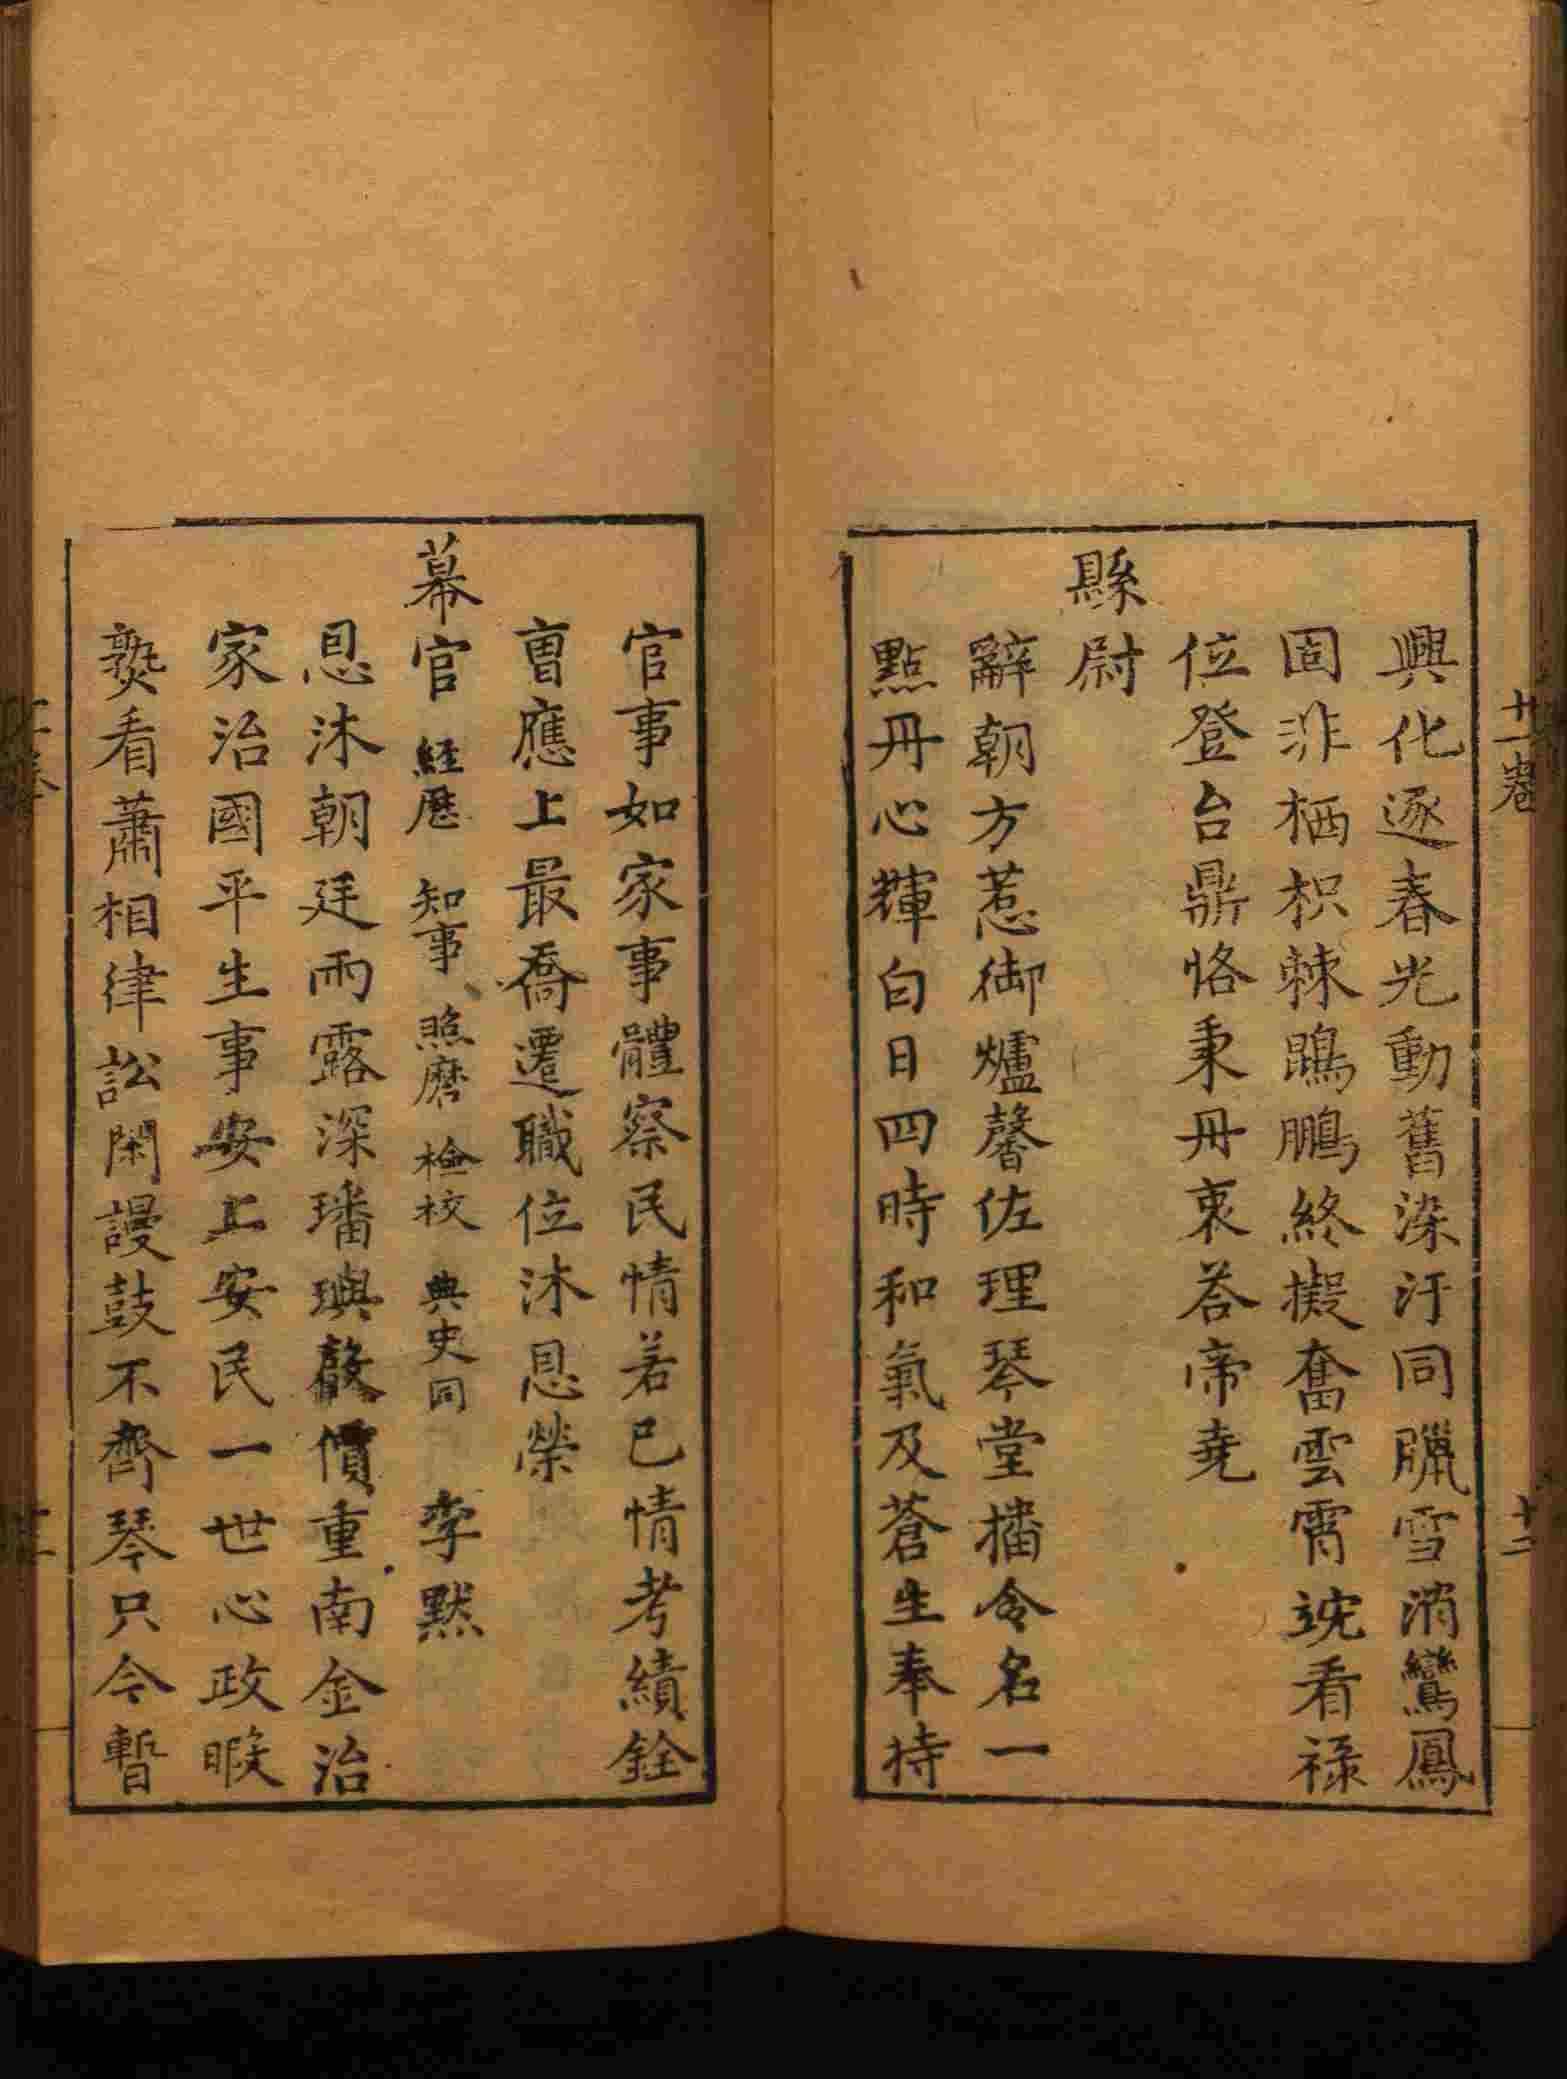 十一卷
十二
興化逐春光動舊染汙同臘雪消鸞鳳
固非栖枳棘鵾鵬終擬奮雲霄竚看祿
位登台鼎恪秉丹衷荅帝堯
縣尉
辭朝方惹御爐馨佐理琴堂播令名一
點丹心輝白日四時和氣及蒼生奉持
官事如家事體察民情若己情考績銓
曹應上最喬遷職位沐恩榮
幕官 經歷 知事 照磨 檢校 典史同 李默
恩沐朝廷雨露深璠璵聲價重南金治
家治國平生事安上安民一世心政暇
爇看蕭相律訟閑謾鼓不齊琴只今暫